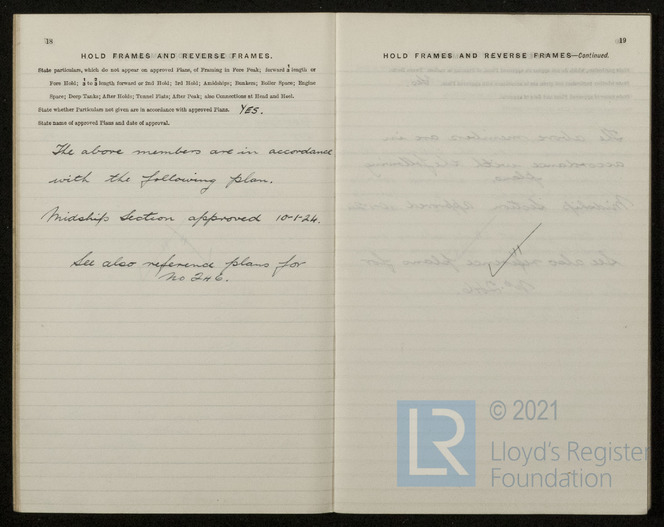 18
HOLD FRAMES AND REVERSE FRAMES.
State particulars, which do not appear on approved Plans, of Framing in Fore Peak; forward 1/2 length or
Fore Hold; 1/2 to 3/5 length forward or 2nd Hold; 3rd Hold; Amidships; Bunkers; Boiler Space; Engine
Space; Deep Tanks; After Holds; Tunnel Flats; After Peak; also Connections at Head and Heel.
State whether Particulars not given are in accordance with approved Plans. YES.
State name of approved Plans and date of approval.
The above members are in accordance
with the following plan.
Midship Section approved 10-1-24.
See also reference plans for
No 246.
19
HOLD FRAMES AND REVERSE FRAMES—Continued.
LR
© 2021
Lloyd's Register
Foundation